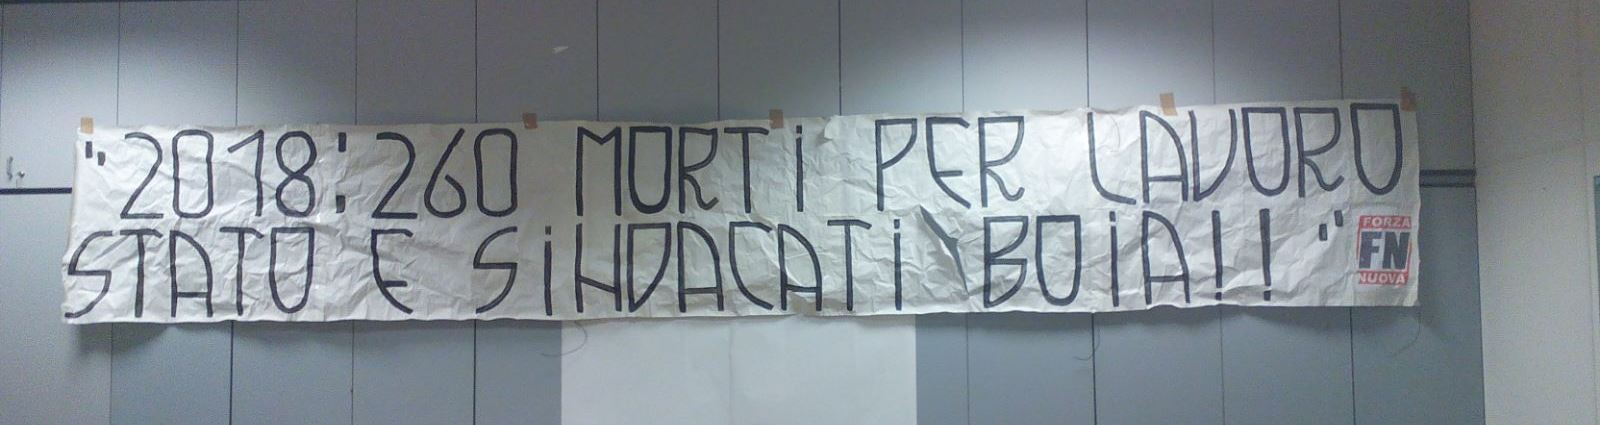 "2018: 260 MORTI PER LAVORO
STATO E SINDACATI BOIA!!"
FORZA
FN
NUOVA